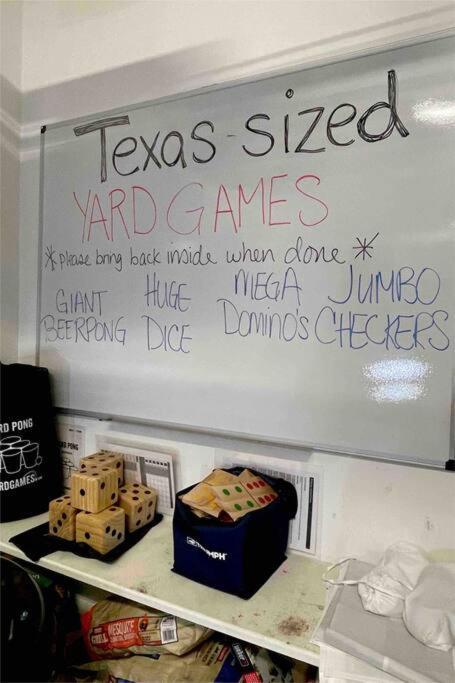 Texas-sized
YARD GAMES
* please bring back inside when done *
GIANT BEERPONG
HUGE DICE
MEGA Domino's
JUMBO CHECKERS
RD PONG
RDGAMES
MESQUITE